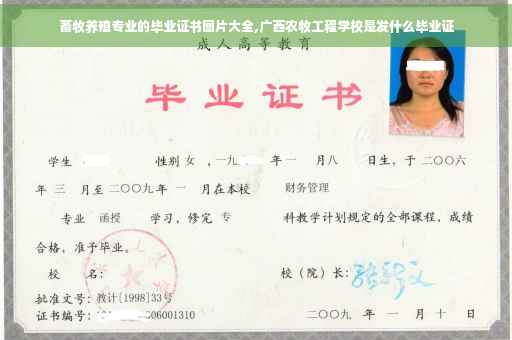 畜牧养殖专业的毕业证书图片大全,广西农牧工程学校是发什么毕业证
成人高等教育
毕业证书
学生 性别 女 ，一九 年 一 月八 日生，于 二〇〇六
年 三 月至 二〇〇九 年 一 月在本校 财务管理
专业 函授 学习，修完 专 科教学计划规定的全部课程，成绩
合格，准予毕业。
校 名： 校（院）长：
批准文号：教计[1998]33号
证书编号： 06001310 二〇〇九 年 一 月 十 日